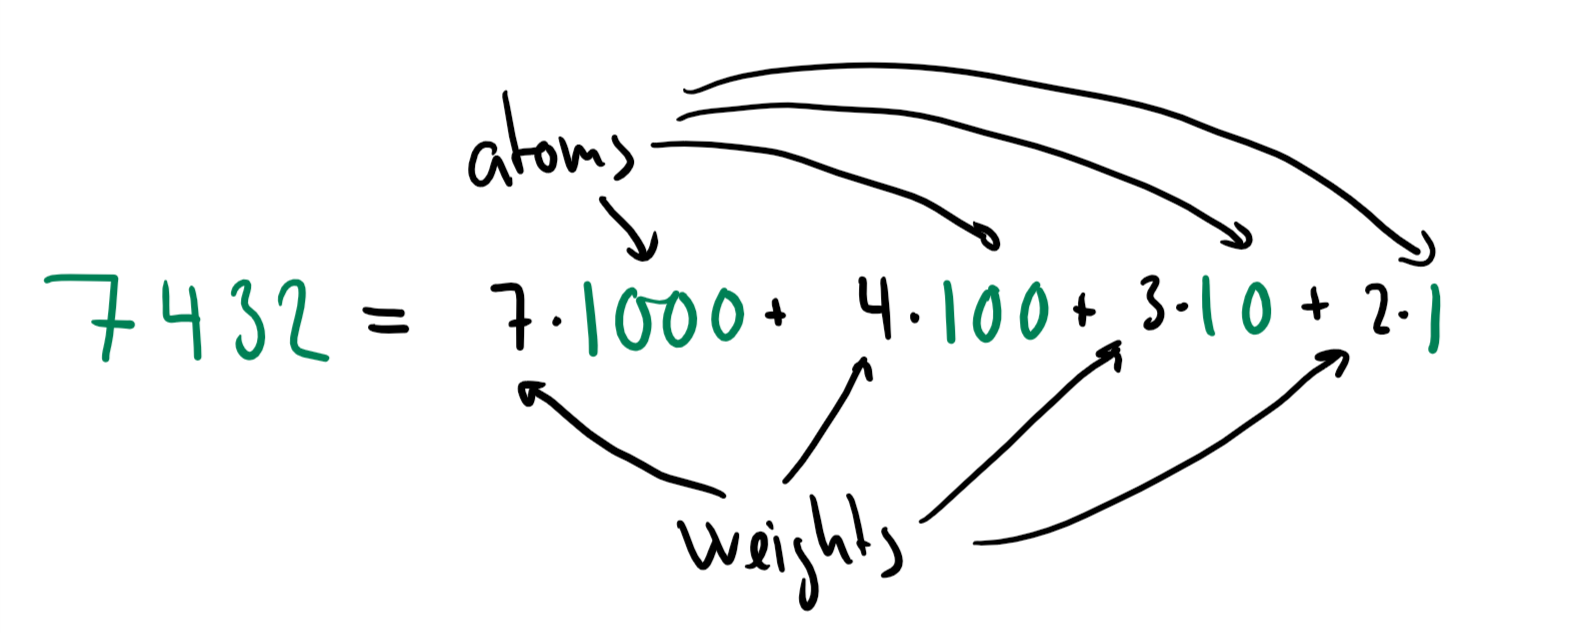 atoms
7432 = 7·1000 + 4·100 + 3·10 + 2·1
weights